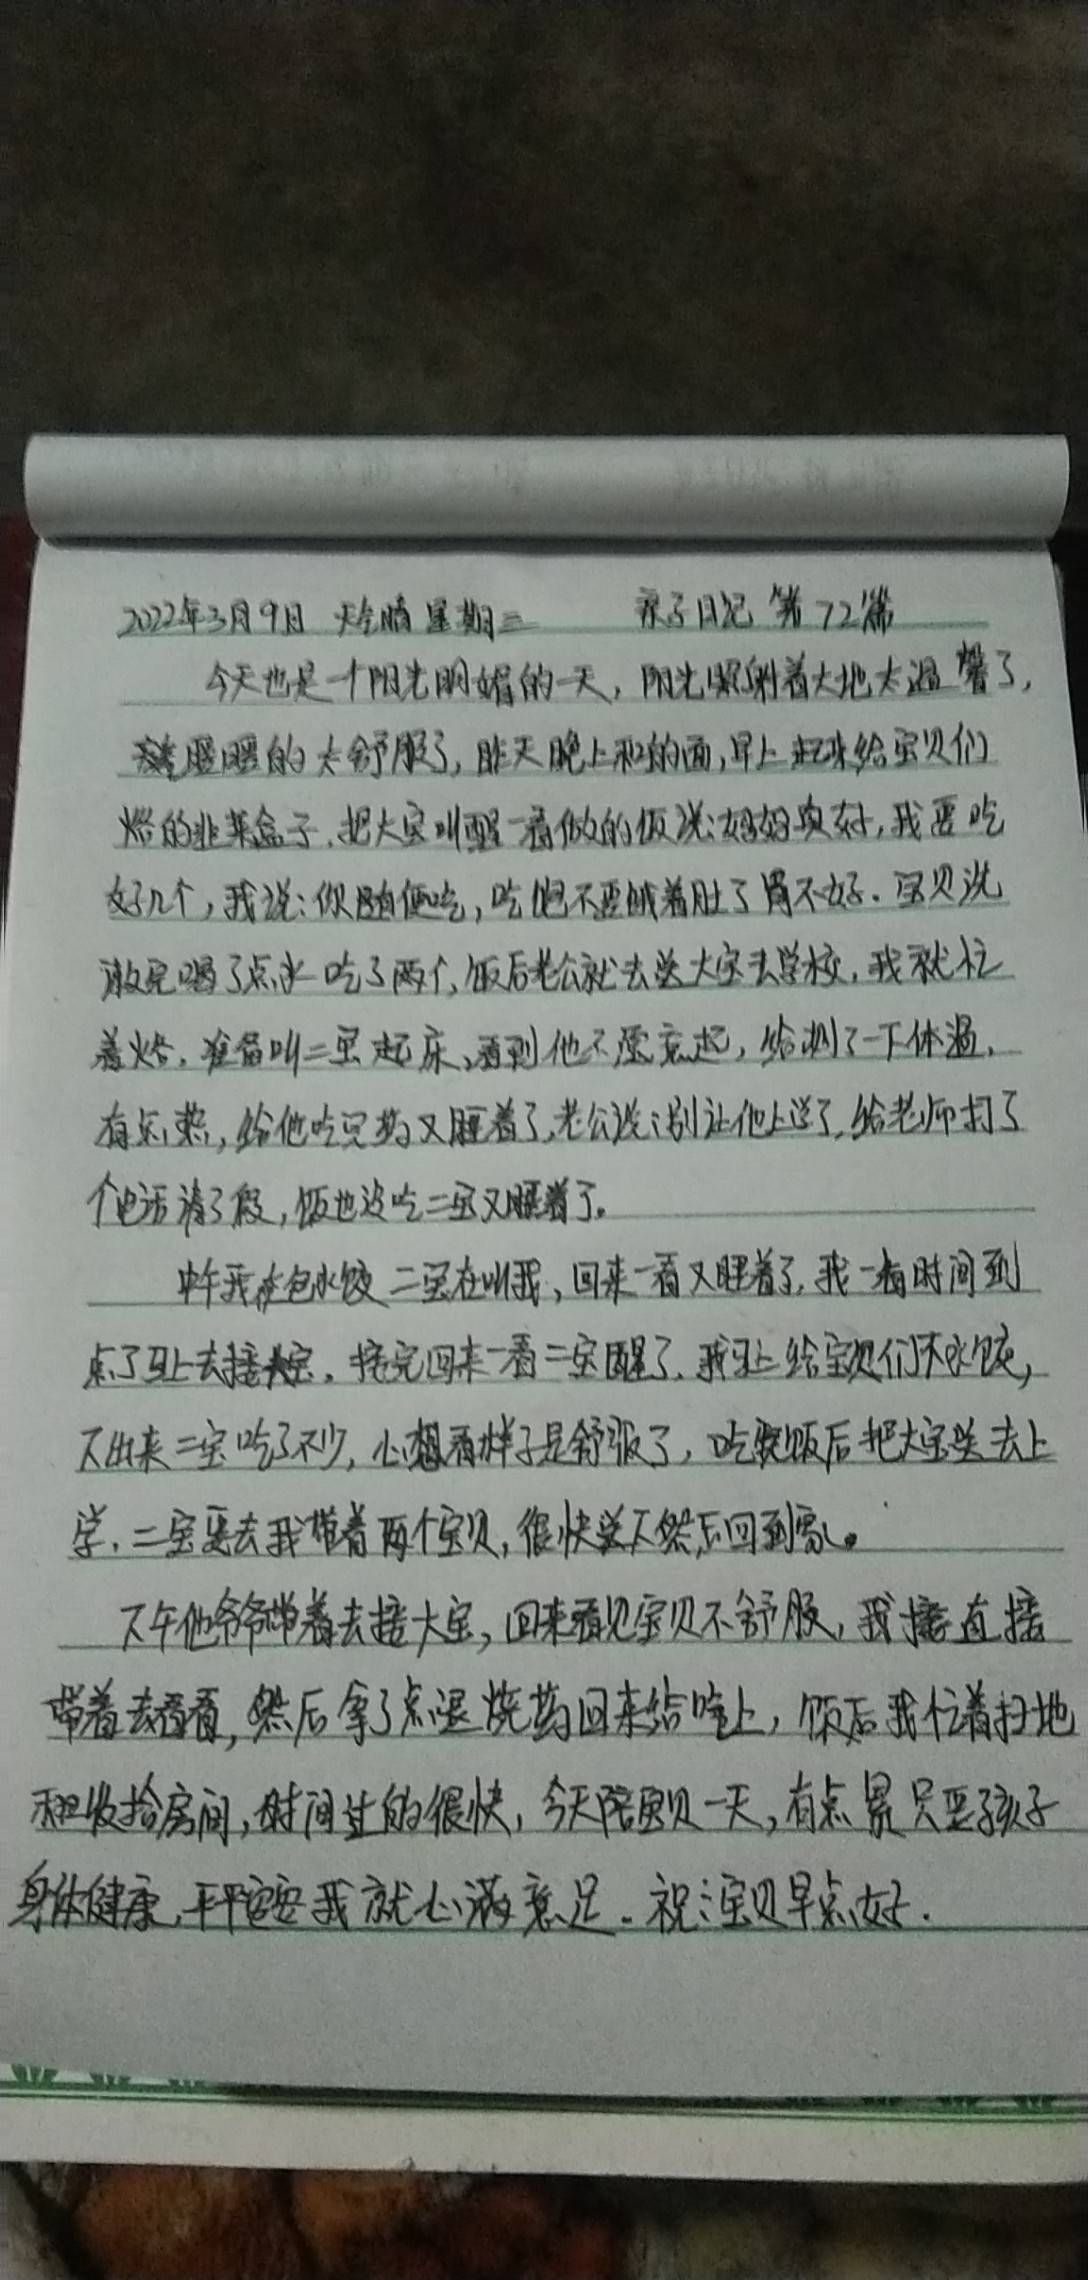 2022年3月9日 天气晴 星期三 亲子日记 第72篇
今天也是一个阳光明媚的一天，阳光照射着大地太温馨了，
暖暖的太舒服了，昨天晚上和的面，早上起来给宝贝们
烙的韭菜盒子，把大宝叫醒一看做的饭说：妈妈真好，我要吃
好几个，我说：你随便吃，吃饱不要饿着肚子胃不好．宝贝洗
漱完喝了点水吃了两个，饭后老公就去送大宝去学校，我就忙
着烙，准备叫二宝起床，看到他不愿意起，给测了一下体温，
有点热，给他吃完药又睡着了，老公说：别让他上学了，给老师打了
个电话请了假，饭也没吃二宝又睡着了。
中午我在包水饺二宝在叫我，回来一看又睡着了，我一看时间到
点了马上去接大宝，接完回来一看二宝醒了，我马上给宝贝们下水饺，
下出来二宝吃了不少，心想看样子是舒服了，吃完饭后把大宝送去上
学，二宝要去我带着两个宝贝，很快送下然后回到家。
下午他爷爷带着去接大宝，回来看见宝贝不舒服，我直接
带着去看看，然后拿了点退烧药回来给吃上，饭后我忙着扫地
和收拾房间，时间过的很快，今天陪宝贝一天，有点累只要孩子
身体健康，平平安安我就心满意足．祝：宝贝早点好．